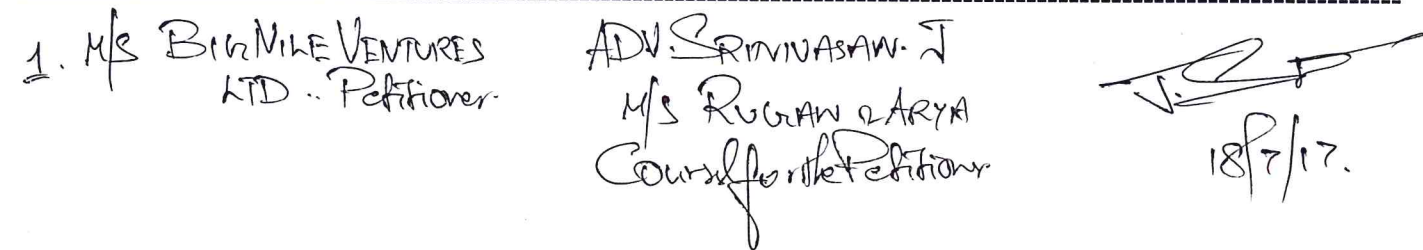 1. M/S BIG NILE VENTURES
LTD .. Petitioner.
ADV. SRINIVASAN. J
M/S RUGHAN & ARYA
Counsel for the Petitioner
18/7/17.